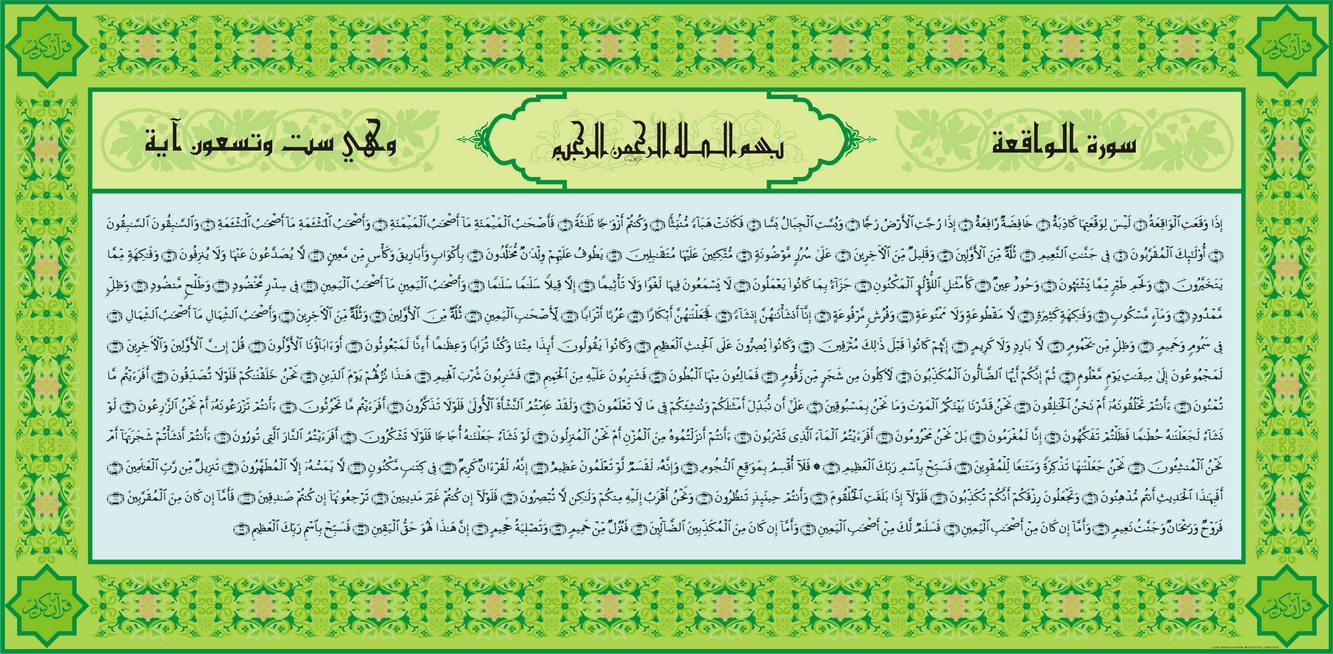 قرآن كريم
قرآن كريم
سورة الواقعة
بسم الله الرحمن الرحيم
وهي ست وتسعون آية
إِذَا وَقَعَتِ الْوَاقِعَةُ ۝ لَيْسَ لِوَقْعَتِهَا كَاذِبَةٌ ۝ خَافِضَةٌ رَّافِعَةٌ ۝ إِذَا رُجَّتِ الْأَرْضُ رَجًّا ۝ وَبُسَّتِ الْجِبَالُ بَسًّا ۝ فَكَانَتْ هَبَاءً مُّنْبَثًّا ۝ وَكُنتُمْ أَزْوَٰجًا ثَلَٰثَةً ۝ فَأَصْحَٰبُ الْمَيْمَنَةِ مَا أَصْحَٰبُ الْمَيْمَنَةِ ۝ وَأَصْحَٰبُ الْمَشْـَٔمَةِ مَا أَصْحَٰبُ الْمَشْـَٔمَةِ ۝ وَالسَّٰبِقُونَ السَّٰبِقُونَ
۝ أُولَٰئِكَ الْمُقَرَّبُونَ ۝ فِي جَنَّٰتِ النَّعِيمِ ۝ ثُلَّةٌ مِّنَ الْأَوَّلِينَ ۝ وَقَلِيلٌ مِّنَ الْآخِرِينَ ۝ عَلَىٰ سُرُرٍ مَّوْضُونَةٍ ۝ مُّتَّكِئِينَ عَلَيْهَا مُتَقَٰبِلِينَ ۝ يَطُوفُ عَلَيْهِمْ وِلْدَٰنٌ مُّخَلَّدُونَ ۝ بِأَكْوَابٍ وَأَبَارِيقَ وَكَأْسٍ مِّن مَّعِينٍ ۝ لَّا يُصَدَّعُونَ عَنْهَا وَلَا يُنزِفُونَ ۝ وَفَٰكِهَةٍ مِّمَّا
يَتَخَيَّرُونَ ۝ وَلَحْمِ طَيْرٍ مِّمَّا يَشْتَهُونَ ۝ وَحُورٌ عِينٌ ۝ كَأَمْثَٰلِ اللُّؤْلُؤِ الْمَكْنُونِ ۝ جَزَاءً بِمَا كَانُوا يَعْمَلُونَ ۝ لَا يَسْمَعُونَ فِيهَا لَغْوًا وَلَا تَأْثِيمًا ۝ إِلَّا قِيلًا سَلَٰمًا سَلَٰمًا ۝ وَأَصْحَٰبُ الْيَمِينِ مَا أَصْحَٰبُ الْيَمِينِ ۝ فِي سِدْرٍ مَّخْضُودٍ ۝ وَطَلْحٍ مَّنضُودٍ ۝ وَظِلٍّ
مَّمْدُودٍ ۝ وَمَاءٍ مَّسْكُوبٍ ۝ وَفَٰكِهَةٍ كَثِيرَةٍ ۝ لَّا مَقْطُوعَةٍ وَلَا مَمْنُوعَةٍ ۝ وَفُرُشٍ مَّرْفُوعَةٍ ۝ إِنَّا أَنشَأْنَٰهُنَّ إِنشَاءً ۝ فَجَعَلْنَٰهُنَّ أَبْكَارًا ۝ عُرُبًا أَتْرَابًا ۝ لِّأَصْحَٰبِ الْيَمِينِ ۝ ثُلَّةٌ مِّنَ الْأَوَّلِينَ ۝ وَثُلَّةٌ مِّنَ الْآخِرِينَ ۝ وَأَصْحَٰبُ الشِّمَالِ مَا أَصْحَٰبُ الشِّمَالِ ۝
فِي سَمُومٍ وَحَمِيمٍ ۝ وَظِلٍّ مِّن يَحْمُومٍ ۝ لَّا بَارِدٍ وَلَا كَرِيمٍ ۝ إِنَّهُمْ كَانُوا قَبْلَ ذَٰلِكَ مُتْرَفِينَ ۝ وَكَانُوا يُصِرُّونَ عَلَى الْحِنثِ الْعَظِيمِ ۝ وَكَانُوا يَقُولُونَ أَئِذَا مِتْنَا وَكُنَّا تُرَابًا وَعِظَٰمًا أَءِنَّا لَمَبْعُوثُونَ ۝ أَوَءَابَاؤُنَا الْأَوَّلُونَ ۝ قُلْ إِنَّ الْأَوَّلِينَ وَالْآخِرِينَ ۝
لَمَجْمُوعُونَ إِلَىٰ مِيقَٰتِ يَوْمٍ مَّعْلُومٍ ۝ ثُمَّ إِنَّكُمْ أَيُّهَا الضَّالُّونَ الْمُكَذِّبُونَ ۝ لَآكِلُونَ مِن شَجَرٍ مِّن زَقُّومٍ ۝ فَمَالِئُونَ مِنْهَا الْبُطُونَ ۝ فَشَٰرِبُونَ عَلَيْهِ مِنَ الْحَمِيمِ ۝ فَشَٰرِبُونَ شُرْبَ الْهِيمِ ۝ هَٰذَا نُزُلُهُمْ يَوْمَ الدِّينِ ۝ نَحْنُ خَلَقْنَٰكُمْ فَلَوْلَا تُصَدِّقُونَ ۝ أَفَرَءَيْتُم مَّا
تُمْنُونَ ۝ ءَأَنتُمْ تَخْلُقُونَهُ أَمْ نَحْنُ الْخَٰلِقُونَ ۝ نَحْنُ قَدَّرْنَا بَيْنَكُمُ الْمَوْتَ وَمَا نَحْنُ بِمَسْبُوقِينَ ۝ عَلَىٰ أَن نُّبَدِّلَ أَمْثَٰلَكُمْ وَنُنشِئَكُمْ فِي مَا لَا تَعْلَمُونَ ۝ وَلَقَدْ عَلِمْتُمُ النَّشْأَةَ الْأُولَىٰ فَلَوْلَا تَذَكَّرُونَ ۝ أَفَرَءَيْتُم مَّا تَحْرُثُونَ ۝ ءَأَنتُمْ تَزْرَعُونَهُ أَمْ نَحْنُ الزَّٰرِعُونَ ۝ لَوْ
نَشَاءُ لَجَعَلْنَٰهُ حُطَٰمًا فَظَلْتُمْ تَفَكَّهُونَ ۝ إِنَّا لَمُغْرَمُونَ ۝ بَلْ نَحْنُ مَحْرُومُونَ ۝ أَفَرَءَيْتُمُ الْمَاءَ الَّذِي تَشْرَبُونَ ۝ ءَأَنتُمْ أَنزَلْتُمُوهُ مِنَ الْمُزْنِ أَمْ نَحْنُ الْمُنزِلُونَ ۝ لَوْ نَشَاءُ جَعَلْنَٰهُ أُجَاجًا فَلَوْلَا تَشْكُرُونَ ۝ أَفَرَءَيْتُمُ النَّارَ الَّتِي تُورُونَ ۝ ءَأَنتُمْ أَنشَأْتُمْ شَجَرَتَهَا أَمْ
نَحْنُ الْمُنشِئُونَ ۝ نَحْنُ جَعَلْنَٰهَا تَذْكِرَةً وَمَتَٰعًا لِّلْمُقْوِينَ ۝ فَسَبِّحْ بِاسْمِ رَبِّكَ الْعَظِيمِ ۝ * فَلَا أُقْسِمُ بِمَوَٰقِعِ النُّجُومِ ۝ وَإِنَّهُ لَقَسَمٌ لَّوْ تَعْلَمُونَ عَظِيمٌ ۝ إِنَّهُ لَقُرْءَانٌ كَرِيمٌ ۝ فِي كِتَٰبٍ مَّكْنُونٍ ۝ لَّا يَمَسُّهُ إِلَّا الْمُطَهَّرُونَ ۝ تَنزِيلٌ مِّن رَّبِّ الْعَٰلَمِينَ ۝
أَفَبِهَٰذَا الْحَدِيثِ أَنتُم مُّدْهِنُونَ ۝ وَتَجْعَلُونَ رِزْقَكُمْ أَنَّكُمْ تُكَذِّبُونَ ۝ فَلَوْلَا إِذَا بَلَغَتِ الْحُلْقُومَ ۝ وَأَنتُمْ حِينَئِذٍ تَنظُرُونَ ۝ وَنَحْنُ أَقْرَبُ إِلَيْهِ مِنكُمْ وَلَٰكِن لَّا تُبْصِرُونَ ۝ فَلَوْلَا إِن كُنتُمْ غَيْرَ مَدِينِينَ ۝ تَرْجِعُونَهَا إِن كُنتُمْ صَٰدِقِينَ ۝ فَأَمَّا إِن كَانَ مِنَ الْمُقَرَّبِينَ ۝
فَرَوْحٌ وَرَيْحَانٌ وَجَنَّتُ نَعِيمٍ ۝ وَأَمَّا إِن كَانَ مِنْ أَصْحَٰبِ الْيَمِينِ ۝ فَسَلَٰمٌ لَّكَ مِنْ أَصْحَٰبِ الْيَمِينِ ۝ وَأَمَّا إِن كَانَ مِنَ الْمُكَذِّبِينَ الضَّالِّينَ ۝ فَنُزُلٌ مِّنْ حَمِيمٍ ۝ وَتَصْلِيَةُ جَحِيمٍ ۝ إِنَّ هَٰذَا لَهُوَ حَقُّ الْيَقِينِ ۝ فَسَبِّحْ بِاسْمِ رَبِّكَ الْعَظِيمِ ۝
قرآن كريم
قرآن كريم